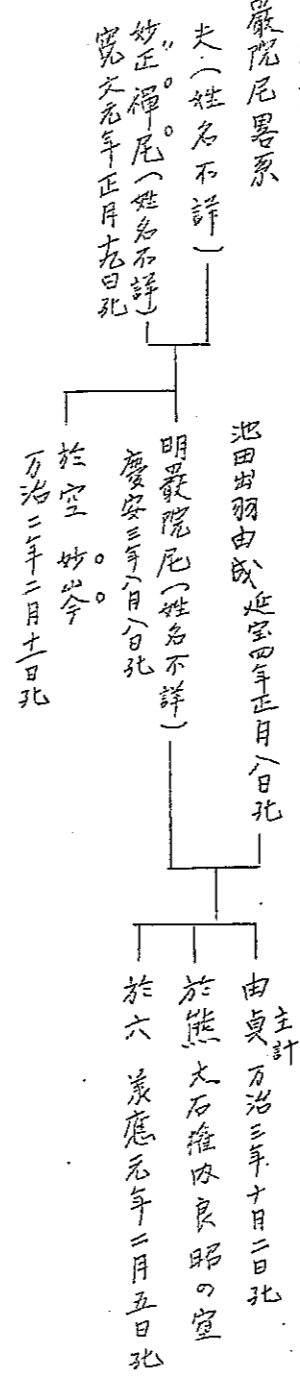 巌院尼畧系
夫(姓名不詳)
妙正禅尼(姓名不詳)
寛文元年正月十九日死
池田出羽由成 延宝四年正月八日死
明巌院尼(姓名不詳)
慶安三年八月八日死
於空 妙
万治二年二月十一日死
主計
由貞 万治三年十月二日死
於熊 大石権内良昭の室
於六 承應元年二月五日死